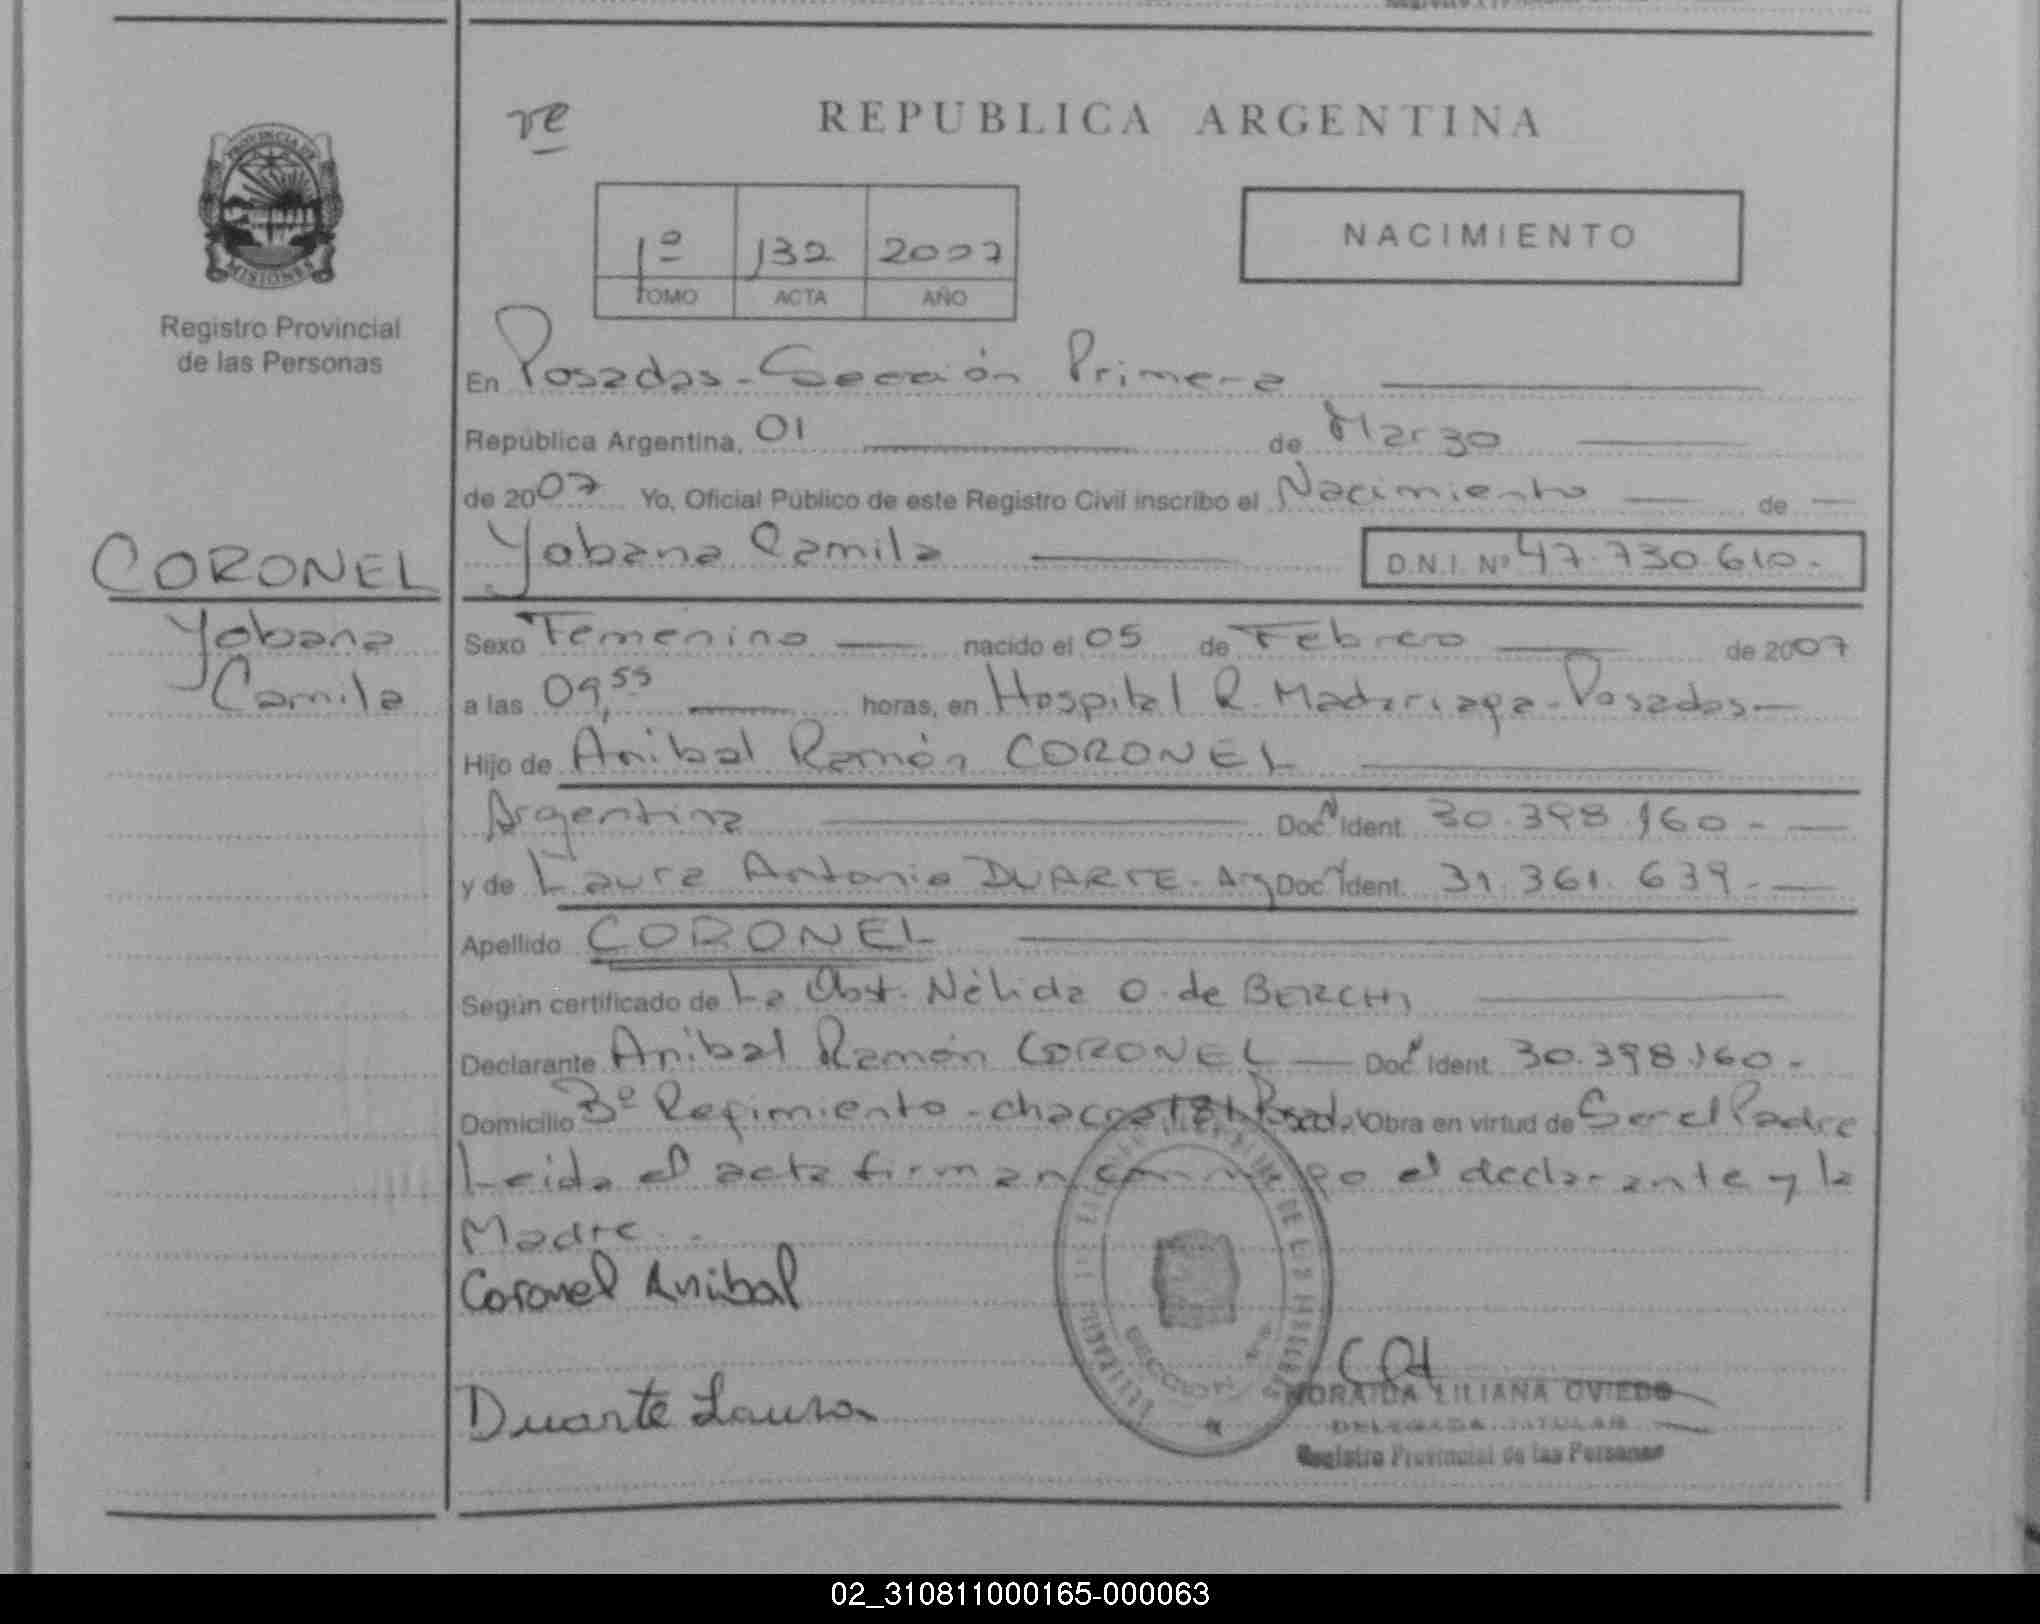 PROVINCIA DE
MISIONES
Registro Provincial
de las Personas
CORONEL
Yobana
Camila
re
REPUBLICA ARGENTINA
1º 132 2007
TOMO ACTA AÑO
NACIMIENTO
En Posadas - Sección Primera
República Argentina, 01 de Marzo
de 2007 Yo, Oficial Público de este Registro Civil inscribo el Nacimiento de
Yobana Camila D.N.I. Nº 47.730.610.-
Sexo Femenino nacido el 05 de Febrero de 2007
a las 09,55 horas, en Hospital R. Madariaga - Posadas
Hijo de Anibal Ramón CORONEL
Argentina Doc. Ident. 30.398.160.-
y de Laura Antonia DUARTE - Arg Doc. Ident. 31.361.639.-
Apellido CORONEL
Según certificado de La Obst. Nélida O. de
Declarante Anibal Ramón CORONEL Doc. Ident. 30.398.160.-
Domicilio 3º Regimiento - chacra 181 Posadas Obra en virtud de Ser el Padre
Leida el acta firman conmigo el declarante y la
Madre.-
Coronel Anibal
Duarte Laura
NORAIDA LILIANA OVIEDO
DELEGADA TITULAR
Registro Provincial de las Personas
02_310811000165-000063